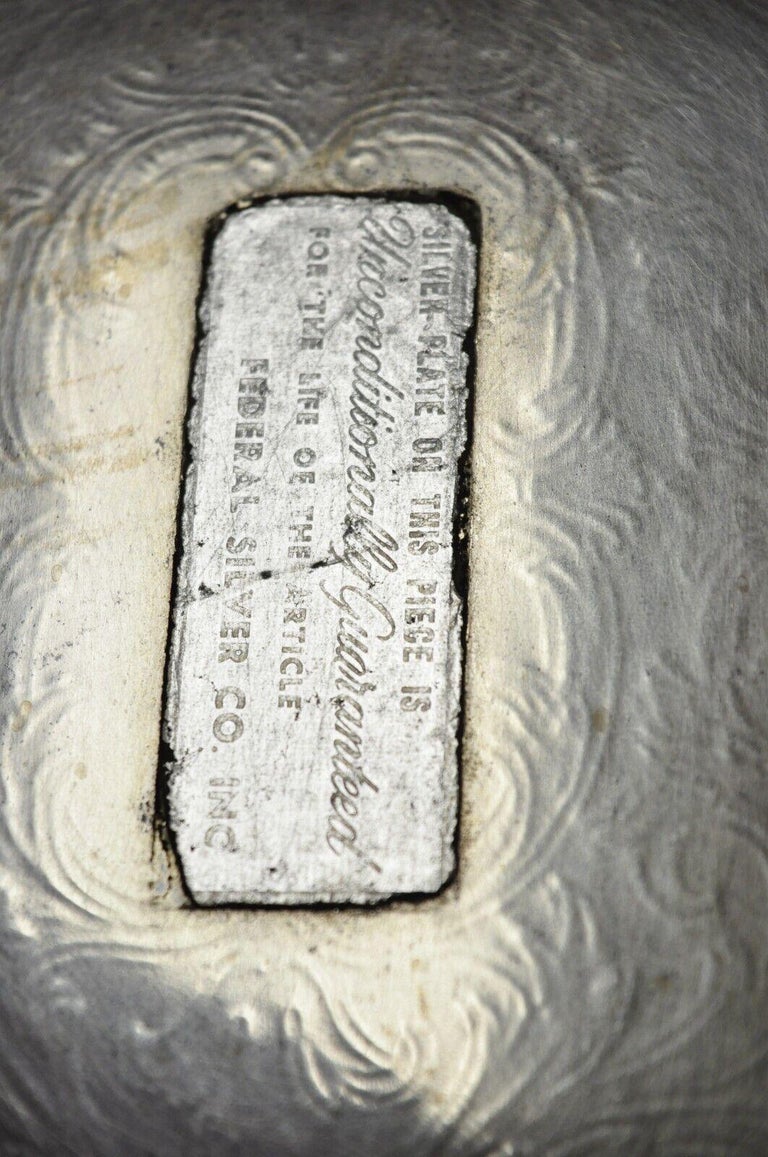 SILVER PLATE ON THIS PIECE IS
Unconditionally Guaranteed
FOR THE LIFE OF THE ARTICLE
FEDERAL SILVER CO. INC